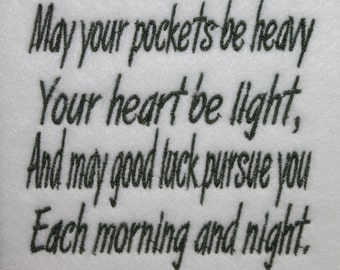 May your pockets be heavy
Your heart be light,
And may good luck pursue you
Each morning and night.